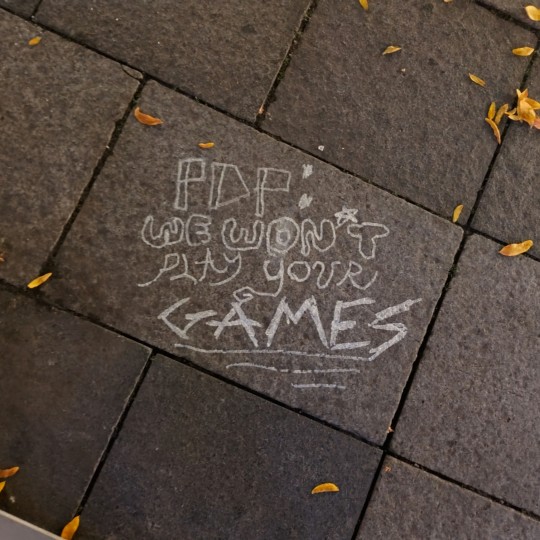 PDP:
WE WON'T
PLAY YOUR
GAMES